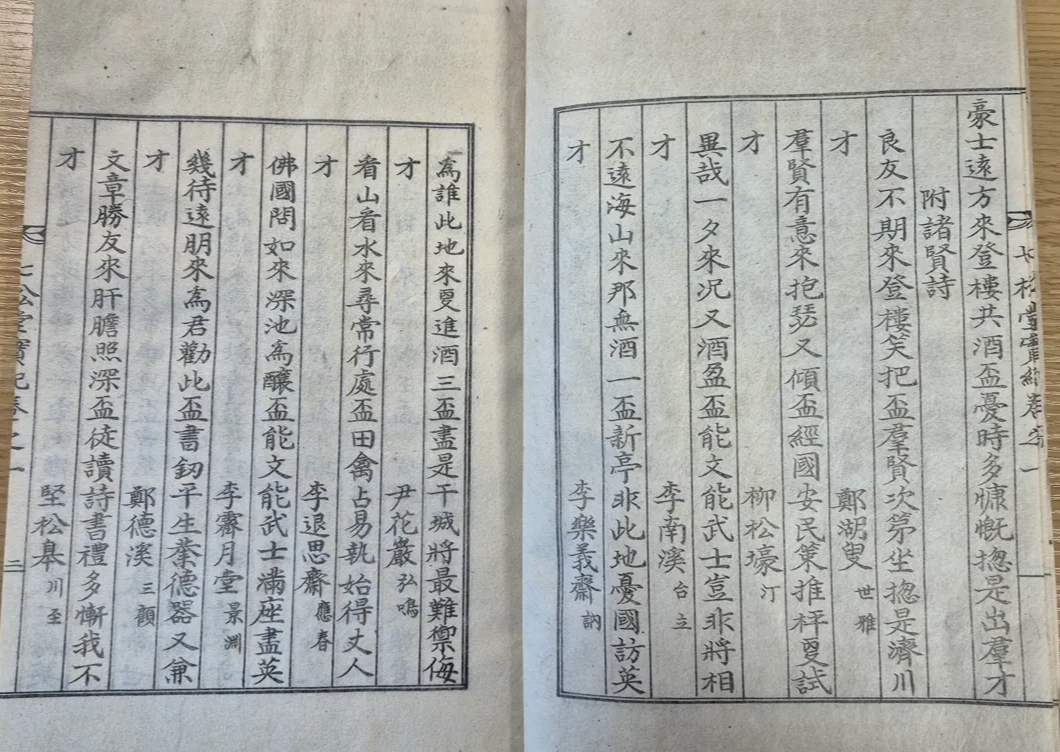 豪士遠方來登樓共酒盃憂時多慷慨揔是出羣才
附諸賢詩
良友不期來登樓笑把盃羣賢次第坐揔是濟川
才 鄭湖叟 世雅
羣賢有意來抱瑟又傾盃經國安民策推枰更試
才 柳松壕 汀
異哉一夕來況又酒盈盃能文能武士豈非將相
才 李南溪 台立
不遠海山來那無酒一盃新亭非此地憂國訪英
才 李樂義齋 訥
七松堂實紀卷之一
爲誰此地來更進酒三盃盡是干城將最難禦侮
才 尹花巖 弘鳴
看山看水來尋常行處盃田禽占易執始得丈人
才 李退思齋 應春
佛國問如來深池爲釀盃能文能武士滿座盡英
才 李霽月堂 景淵
幾待遠朋來爲君勸此盃書釰平生業德器又兼
才 鄭德溪 三顧
文章勝友來肝膽照深盃徒讀詩書禮多慚我不
才 堅松皐 川至
七松堂實紀卷之一 二